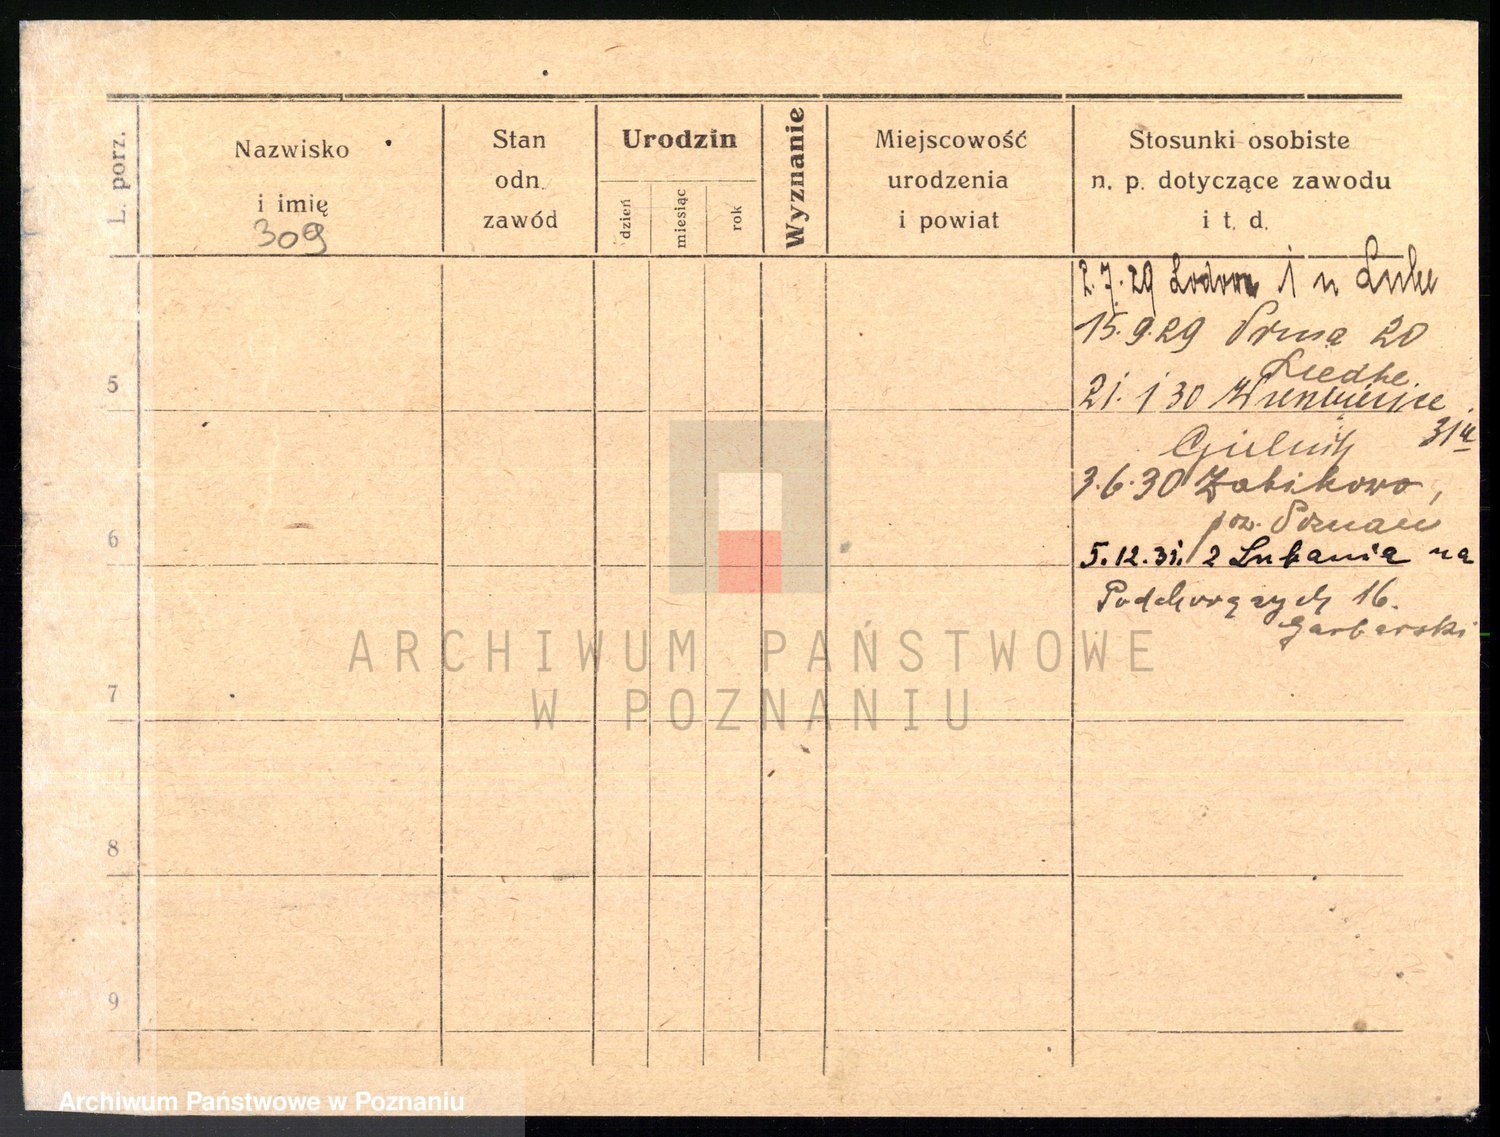 L. porz.
Nazwisko
i imię
309
Stan
odn.
zawód
Urodzin
dzień
miesiąc
rok
Wyznanie
Miejscowość
urodzenia
i powiat
Stosunki osobiste
n. p. dotyczące zawodu
i t. d.
2.7.29
15.9.29 20
21.1 30
3.6.30 Żabikowo,
poz. Poznań
5.12.31. z Lubania na
Podchorążych 16.
Garbarski
5
6
7
8
9
ARCHIWUM PAŃSTWOWE
W POZNANIU
Archiwum Państwowe w Poznaniu